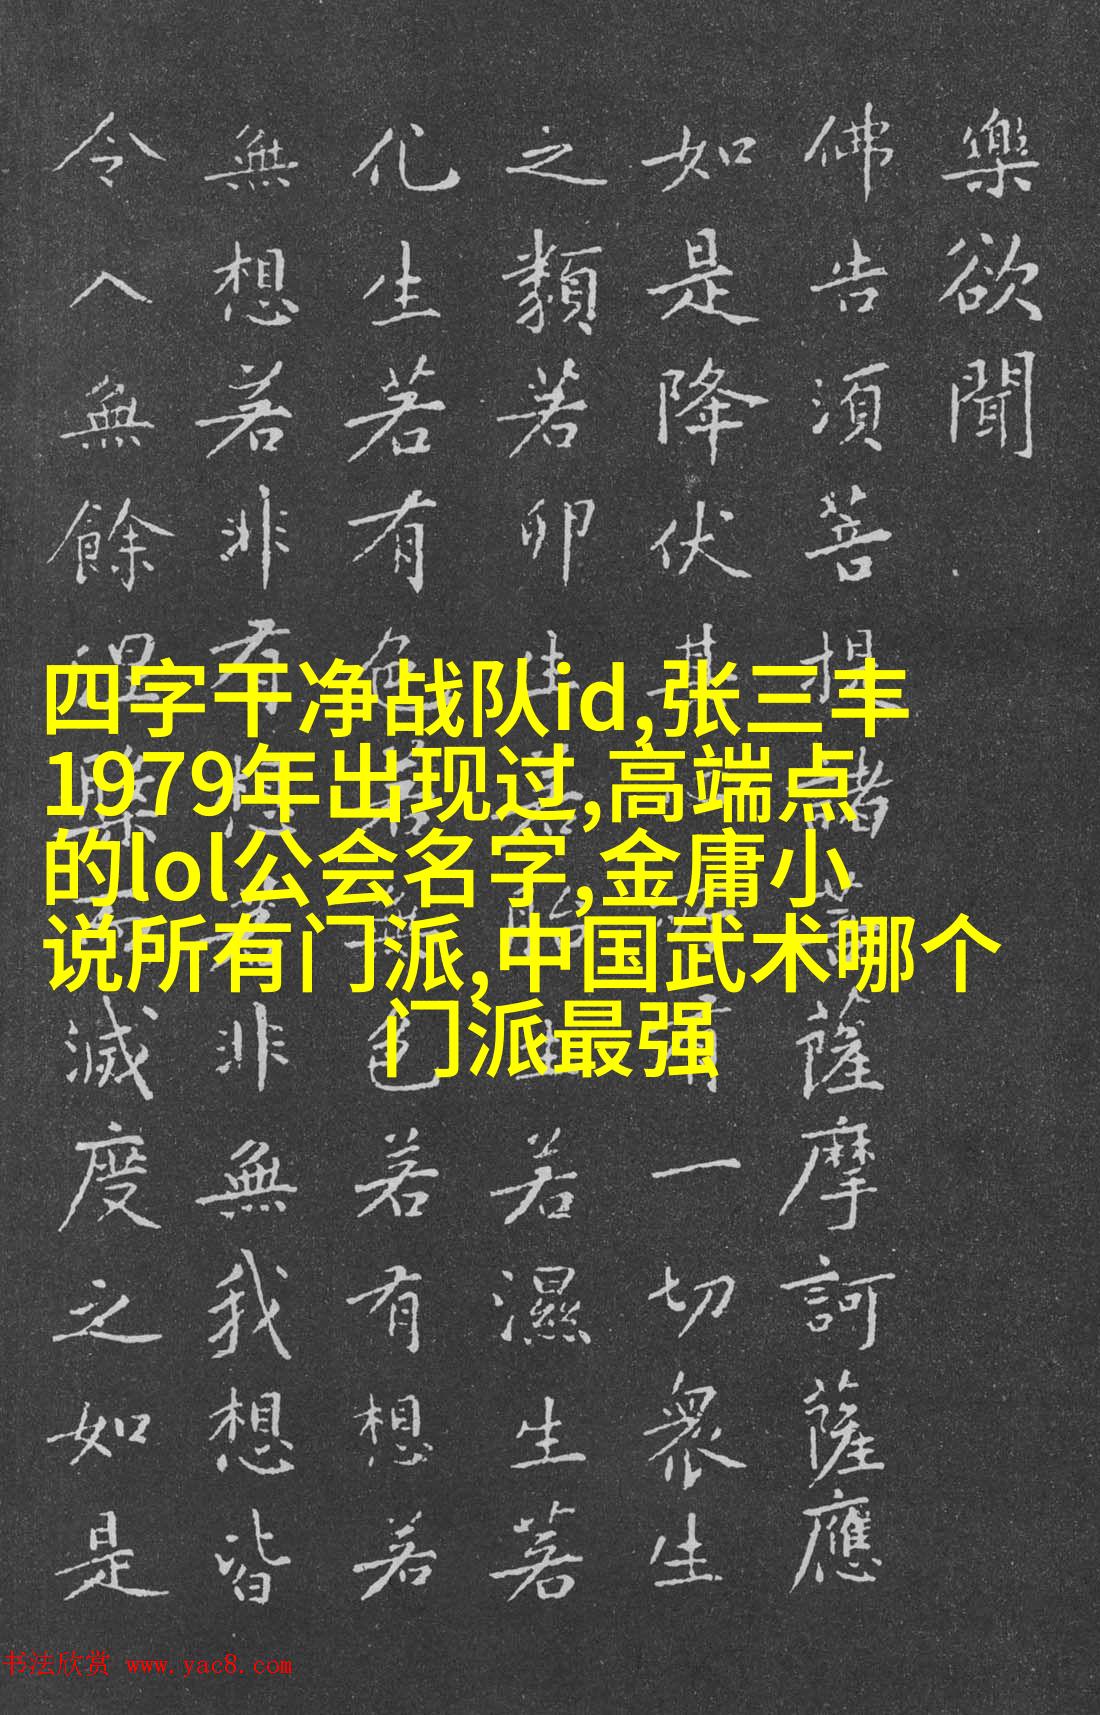 樂欲聞
佛告須菩提諸菩薩摩訶薩應
如是降伏其心所有一切衆生
之類若卵生若胎生若濕生若
化生若有色若無色若有想若
無想若非有想若非無我想皆
令入無餘涅槃而滅度之如是
四字干净战队id,张三丰
1979年出现过,高端点
的lol公会名字,金庸小
说所有门派,中国武术哪个
门派最强
书法欣赏 www.yac8.com